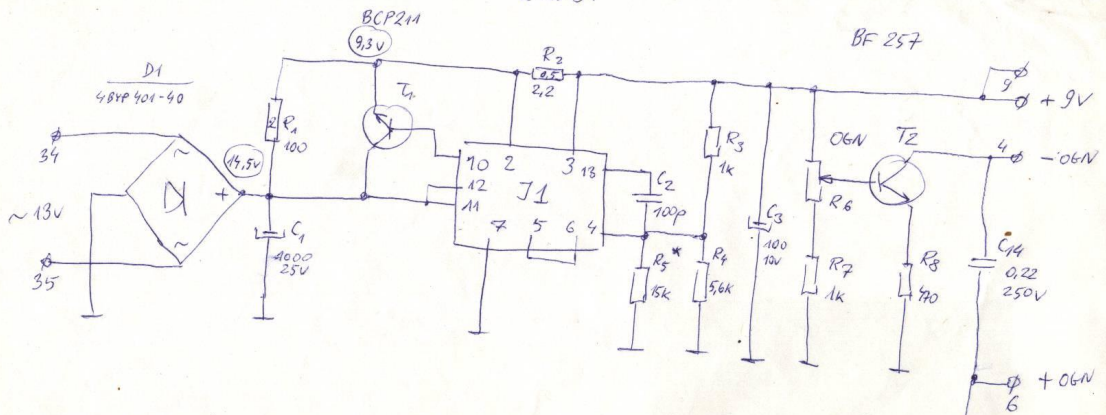 BCP211
9,3V
BF 257
D1
4BYP 401-40
34
~
+
~
~ 13V
35
14,5V
R1
2
100
C1
4000
25V
T1
R2
0,5
2,2
10
2
3
13
12
11
J1
7
5
6
4
C2
100p
R3
1K
R5
*
15K
R4
5,6K
C3
100
10V
OGN
R6
R7
1K
T2
R8
470
9
+ 9V
4
-OGN
C14
0,22
250V
+ OGN
6